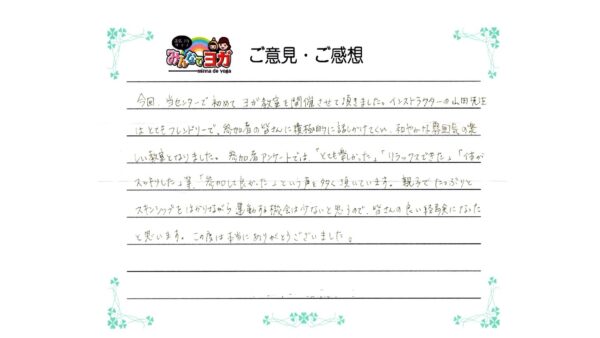 みんなでヨガ
minna de yoga
ご意見・ご感想
今回、当センターで初めて ヨガ教室を開催させて頂きました。インストラクターの山田先生
はとてもフレンドリーで、参加者の皆さんに積極的に話しかけてくれ、和やかな雰囲気の楽
しい教室となりました。参加者アンケートでは、「とても楽しかった」「リラックスできた」「体が
スッキリした」等、「参加して良かった」という声を多く頂いています。親子でたっぷりと
スキンシップをはかりながら運動する機会は少ないと思うので、皆さんの良い経験になった
と思います。この度は本当にありがとうございました。